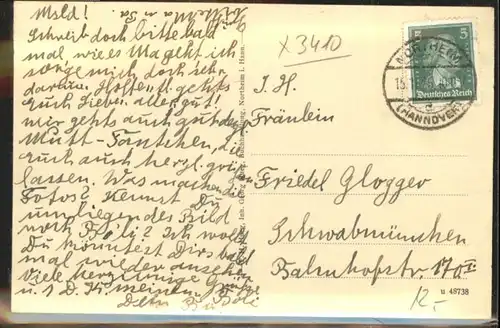 Msld!
Schreibt doch bitte bald
mal wie es Ma geht ich
sorge mich doch sehr
darum. Hoffentl. gehts
Euch Lieben allen gut!
mir gehts auch gut der
Mutt-Tantchen, die
Euch auch herzl. grüß
lassen. Was machen die
Fotos? Kennst Du
umliegendes Bild
noch Böli? Ich wollt
Du könntest Dirs bald
mal wieder ansehen
Viele herzinnige Grüße
u. 1 D. K. meinen
Dein Bu. Böli
x 3410
NORTHEIM
(HANNOVER)
5
5
Deutsches Reich
I. H.
Fräulein
Friedel Glogger
Schwabmünchen
Bahnhofstr. 170 I
u 48738
12,-
Northeim i. Hann.